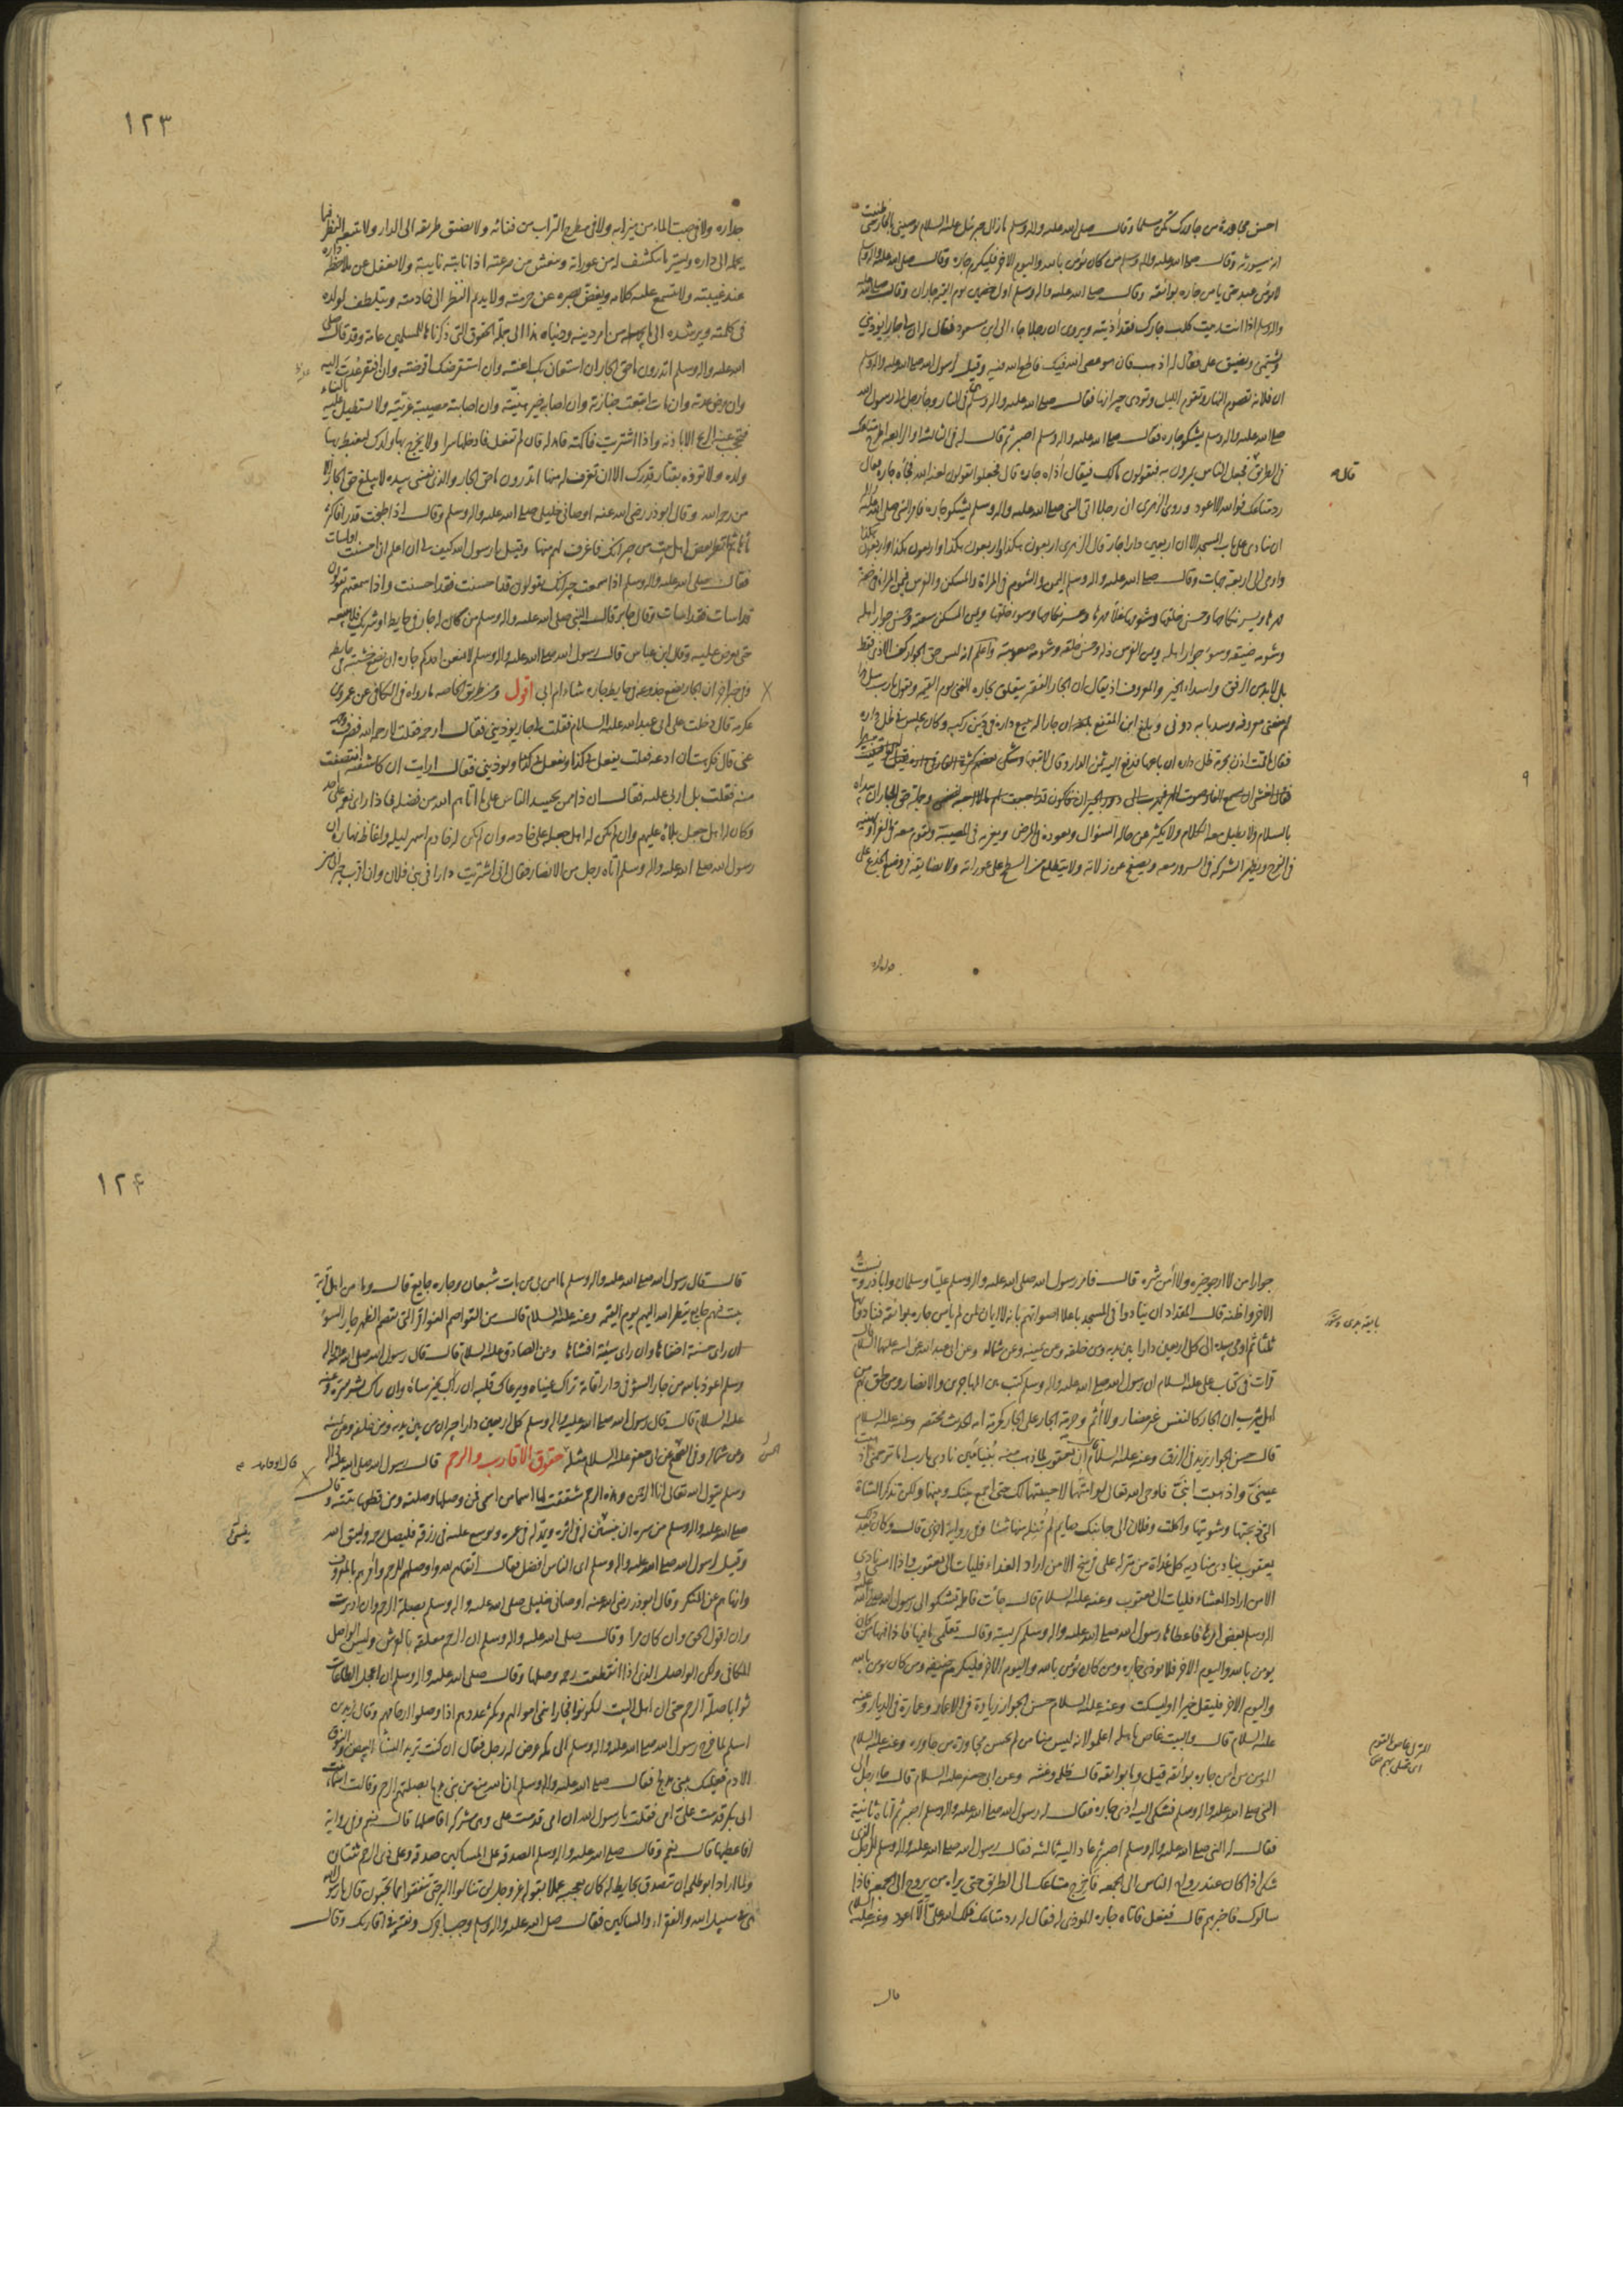 احسن مجاورة من جاورك تكن مسلما وقال صلى الله عليه واله وسلم ما زال جبرئيل عليه السلام يوصيني بالجار حتى ظننت
انه سيورثه وقال صلى الله عليه واله وسلم من كان يؤمن بالله واليوم الاخر فليكرم جاره وقال صلى الله عليه واله وسلم
لا يؤمن عبد حتى يامن جاره بوائقه وقال صلى الله عليه واله وسلم اول خصمين يوم القيمة جاران وقال صلى الله عليه
واله وسلم اذا انت رميت كلب جارك فقد اذيته ويروى ان رجلا جاء الى ابن مسعود فقال له ان لي جارا يؤذيني
ويشتمني ويضيق علي فقال له اذهب فان هو عصى الله فيك فاطع الله فيه وقيل لرسول الله صلى الله عليه واله وسلم
ان فلانة تصوم النهار وتقوم الليل وتؤذي جيرانها فقال صلى الله عليه واله وسلم هي في النار وجاء رجل الى رسول الله
صلى الله عليه واله وسلم يشكو جاره فقال صلى الله عليه واله وسلم اصبر ثم قال له في الثالثة او الرابعة اطرح متاعك
في الطريق فجعل الناس يمرون به فيقولون مالك فيقال اذاه جاره قال فجعلوا يقولون لعنه الله فجاءه جاره فقال
قال
رد متاعك فوالله لا اعود وروى الزهري ان رجلا اتى النبي صلى الله عليه واله وسلم يشكو جاره فامر النبي صلى الله عليه واله
ان ينادى على باب المسجد الا ان اربعين دارا جار قال الزهري اربعون هكذا واربعون هكذا واربعون هكذا واربعون هكذا
واومى الى اربع جهات وقال صلى الله عليه واله وسلم اليمن والشوم في المراة والمسكن والفرس فيمن المراة خفة
مهرها ويسر نكاحها وحسن خلقها وشومها غلاء مهرها وعسر نكاحها وسوء خلقها ويمن المسكن سعته وحسن جوار اهله
وشومه ضيقه وسوء جوار اهله ويمن الفرس ذله وحسن خلقه وشومه صعوبته واعلم انه ليس حق الجوار كف الاذى فقط
بل لا بد من الرفق واسداء الخير والمعروف اذ يقال ان الجار الفقير يتعلق بجاره الغني يوم القيمة ويقول يا رب سل هذا
لم منعني معروفه وسد بابه دوني وبلغ ابن المقفع ان جارا له يبيع داره في دين ركبه وكان يجلس في ظل داره
فقال ما قمت اذن بحرمة ظل داره ان باعها فدفع اليه ثمن الدار وقال لا تبعها وشكى بعضهم كثرة الفار في داره فقيل له لو اقتنيت هرا
فقال اخشى ان يسمع الفار صوت الهر فيهرب الى دور الجيران فاكون قد احببت لهم ما لا احب لنفسي وجملة حق الجار ان يبداه
بالسلام ولا يطيل معه الكلام ولا يكثر عن حاله السؤال ويعوده في المرض ويعزيه في المصيبة ويقوم معه في العزاء ويهنيه
في الفرح ويظهر الشركة في السرور معه ويصفح عن زلاته ولا يتطلع من السطح على عوراته ولا يضايقه في وضع الجذع على
١٢٣
جداره ولا في صب الماء من ميزابه ولا في مطرح التراب من فنائه ولا يضيق طريقه الى الدار ولا يتبعه النظر فيما
يحمله الى داره ويستر ما ينكشف له من عوراته وينعش من صرعته اذا نابته نايبة ولا يغفل عن ملاحظة داره
عند غيبته ولا يتسمع عليه كلامه ويغض بصره عن حرمته ولا يديم النظر الى خادمته ويتلطف لولده
في كلمته ويرشده الى ما يجهله من امر دينه ودنياه هذا الى جملة الحقوق التي ذكرناها للمسلمين عامة وقد قال صلى
الله عليه واله وسلم اتدرون ما حق الجار ان استعان بك اعنته وان استقرضك اقرضته وان افتقر عدت اليه
وان مرض عدته وان مات اتبعت جنازته وان اصابه خير هنيته وان اصابته مصيبة عزيته ولا تستطيل عليه بالبناء
فتحجب عنه الريح الا باذنه واذا اشتريت فاكهة فاهد له فان لم تفعل فادخلها سرا ولا يخرج بها ولدك ليغيظ بها
ولده ولا تؤذه بقتار قدرك الا ان تغرف له منها اتدرون ما حق الجار والذي نفسي بيده لا يبلغ حق الجار الا
من رحمه الله وقال ابوذر رضي الله عنه اوصاني خليلي صلى الله عليه واله وسلم وقال اذا طبخت قدرا فاكثر
ماءها ثم انظر بعض اهل بيت من جيرانك فاغرف لهم منها وقيل يا رسول الله كيف لي ان اعلم اذا احسنت او اسات
فقال صلى الله عليه واله وسلم اذا سمعت جيرانك يقولون قد احسنت فقد احسنت واذا سمعتهم يقولون
قد اسات فقد اسات وقال جابر قال النبي صلى الله عليه واله وسلم من كان له جار في حايط او شريك فلا يبعه
حتى يعرض عليه وقال ابن عباس قال رسول الله صلى الله عليه واله وسلم لا يمنعن احدكم جاره ان يضع خشبته في حايطه
وفي خبر اخر ان الجار يضع جذوعه في حايط جاره شاء ام ابى اقول ومن طريق الخاصة ما رواه في الكافي عن عمرو بن
عكرمة قال دخلت على ابي عبد الله عليه السلام فقلت لي جار يؤذيني فقال ارحمه فقلت لا رحمه الله فصرف وجهه
عني قال فكرهت ان ادعه فقلت يفعل بي كذا ويفعل بي كذا ويؤذيني فقال ارايت ان كاشفته انتصفت
منه فقلت بل اربي عليه فقال ان ذا ممن يحسد الناس على ما اتاهم الله من فضله فاذا راى نعمة على احد
وكان له اهل جعل بلاءه عليهم وان لم يكن له اهل جعله على خادمه وان لم يكن له خادم اسهر ليله واغاظ نهاره ان
رسول الله صلى الله عليه واله وسلم اتاه رجل من الانصار فقال اني اشتريت دارا في بني فلان وان اقرب جيراني مني
جوارا من لا ارجو خيره ولا آمن شره قال فامر رسول الله صلى الله عليه واله وسلم عليا وسلمان واباذر ونسيت
الاخر واظنه قال المقداد ان ينادوا في المسجد باعلا اصواتهم بانه لا ايمان لمن لم يامن جاره بوائقه فنادوا بها
ثلثا ثم اومى بيده الى كل اربعين دارا بين يديه ومن خلفه وعن يمينه وعن شماله وعن ابي عبد الله عن ابيه عليهما السلام قال
قرات في كتاب علي عليه السلام ان رسول الله صلى الله عليه واله وسلم كتب بين المهاجرين والانصار ومن لحق بهم من
اهل يثرب ان الجار كالنفس غير مضار ولا آثم وحرمة الجار على الجار كحرمة امه الحديث مختصر وعنه عليه السلام
قال حسن الجوار يزيد في الرزق وعنه عليه السلام ان يعقوب لما ذهب منه بنيامين نادى يا رب اما ترحمني اذهبت
عيني واذهبت ابني فاوحى الله تعالى لو امتهما لاحييتهما لك حتى اجمع بينك وبينهما ولكن تذكر الشاة
التي ذبحتها وشويتها واكلت وفلان الى جانبك صايم لم تنله منها شيئا وفي رواية اخرى قال وكان بعد ذلك
يعقوب ينادي مناديه كل غداة من منزله على فرسخ الا من اراد الغداء فليات الى يعقوب واذا امسى نادى
الا من اراد العشاء فليات الى يعقوب وعنه عليه السلام قال جاءت فاطمة تشكو الى رسول الله صلى الله عليه و
اله وسلم بعض امرها فاعطاها رسول الله صلى الله عليه واله وسلم كريسة وقال تعلمي ما فيها فاذا فيها من كان
يؤمن بالله واليوم الاخر فلا يؤذي جاره ومن كان يؤمن بالله واليوم الاخر فليكرم ضيفه ومن كان يؤمن بالله
واليوم الاخر فليقل خيرا او ليسكت وعنه عليه السلام حسن الجوار زيادة في الاعمار وعمارة في الديار وعنه
عليه السلام قال والبيت غاص باهله اعلموا انه ليس منا من لم يحسن مجاورة من جاوره وعنه عليه السلام
المؤمن من امن جاره بوائقه قيل وما بوائقه قال ظلمه وغشمه وعن ابي جعفر عليه السلام قال جاء رجل الى
النبي صلى الله عليه واله وسلم فشكى اليه اذى جاره فقال له رسول الله صلى الله عليه واله وسلم اصبر ثم اتاه ثانية
فقال له النبي صلى الله عليه واله وسلم اصبر ثم عاد اليه ثالثة فقال رسول الله صلى الله عليه واله وسلم للرجل الذي
شكى اذا كان عند رواح الناس الى الجمعة فاخرج متاعك الى الطريق حتى يراه من يروح الى الجمعة فاذا
سالوك فاخبرهم قال ففعل فاتاه جاره المؤذي له فقال له رد متاعك فلك الله علي الا اعود وعنه عليه السلام
قال
١٢٤
قال قال رسول الله صلى الله عليه واله وسلم ما امن بي من بات شبعان وجاره جايع قال وما من اهل قرية
يبيت فيهم جايع ينظر الله اليهم يوم القيمة وعنه عليه السلام قال من القواصم الفواقر التي تقصم الظهر جار السوء
ان راى حسنة اخفاها وان راى سيئة افشاها وعن الصادق عليه السلام قال قال رسول الله صلى الله عليه واله
وسلم اعوذ بالله من جار السوء في دار اقامة تراك عيناه ويرعاك قلبه ان راك بخير ساءه وان راك بشر سره وعنه
عليه السلام قال قال رسول الله صلى الله عليه واله وسلم كل اربعين دارا جيران من بين يديه ومن خلفه وعن يمينه
وعن شماله وفي الصحيح عن ابي جعفر عليه السلام مثله حقوق الاقارب والرحم قال رسول الله صلى الله عليه واله
قال ابو حامد
وسلم يقول الله تعالى انا الرحمن وهذه الرحم شققت لها اسما من اسمي فمن وصلها وصلته ومن قطعها بتته وقال
صلى الله عليه واله وسلم من سره ان ينسى له في اثره ويمد له في عمره ويوسع عليه في رزقه فليصل رحمه وليتق الله
وقيل لرسول الله صلى الله عليه واله وسلم اي الناس افضل فقال اتقاهم لله واوصلهم للرحم وآمرهم بالمعروف
وانهاهم عن المنكر وقال ابوذر رضي الله عنه اوصاني خليلي صلى الله عليه واله وسلم بصلة الرحم وان ادبرت
وان اقول الحق وان كان مرا وقال صلى الله عليه واله وسلم ان الرحم معلقة بالعرش وليس الواصل
المكافي ولكن الواصل الذي اذا انقطعت رحمه وصلها وقال صلى الله عليه واله وسلم ان اعجل الطاعات
ثوابا صلة الرحم حتى ان اهل البيت ليكونوا فجارا ينمى اموالهم ويكثر عددهم اذا وصلوا ارحامهم وقال زيد بن
اسلم لما خرج رسول الله صلى الله عليه واله وسلم الى مكة عرض له رجل فقال ان كنت تريد النساء البيض والنوق
الادم فعليك ببني مدلج فقال صلى الله عليه واله وسلم ان الله منعني من بني مدلج بصلتهم الرحم وقالت اسماء بنت
ابي بكر قدمت علي امي فقلت يا رسول الله ان امي قدمت علي وهي مشركة افاصلها قال نعم وفي رواية
افاعطيها قال نعم وقال صلى الله عليه واله وسلم الصدقة على المساكين صدقة وعلى ذي الرحم ثنتان
ولما اراد ابو طلحة ان يتصدق بحايط له كان يعجبه عملا بقوله عز وجل لن تنالوا البر حتى تنفقوا مما تحبون قال يا رسول الله
هو في سبيل الله والفقراء والمساكين فقال صلى الله عليه واله وسلم وجب اجرك وقسمه في اقاربك وقال